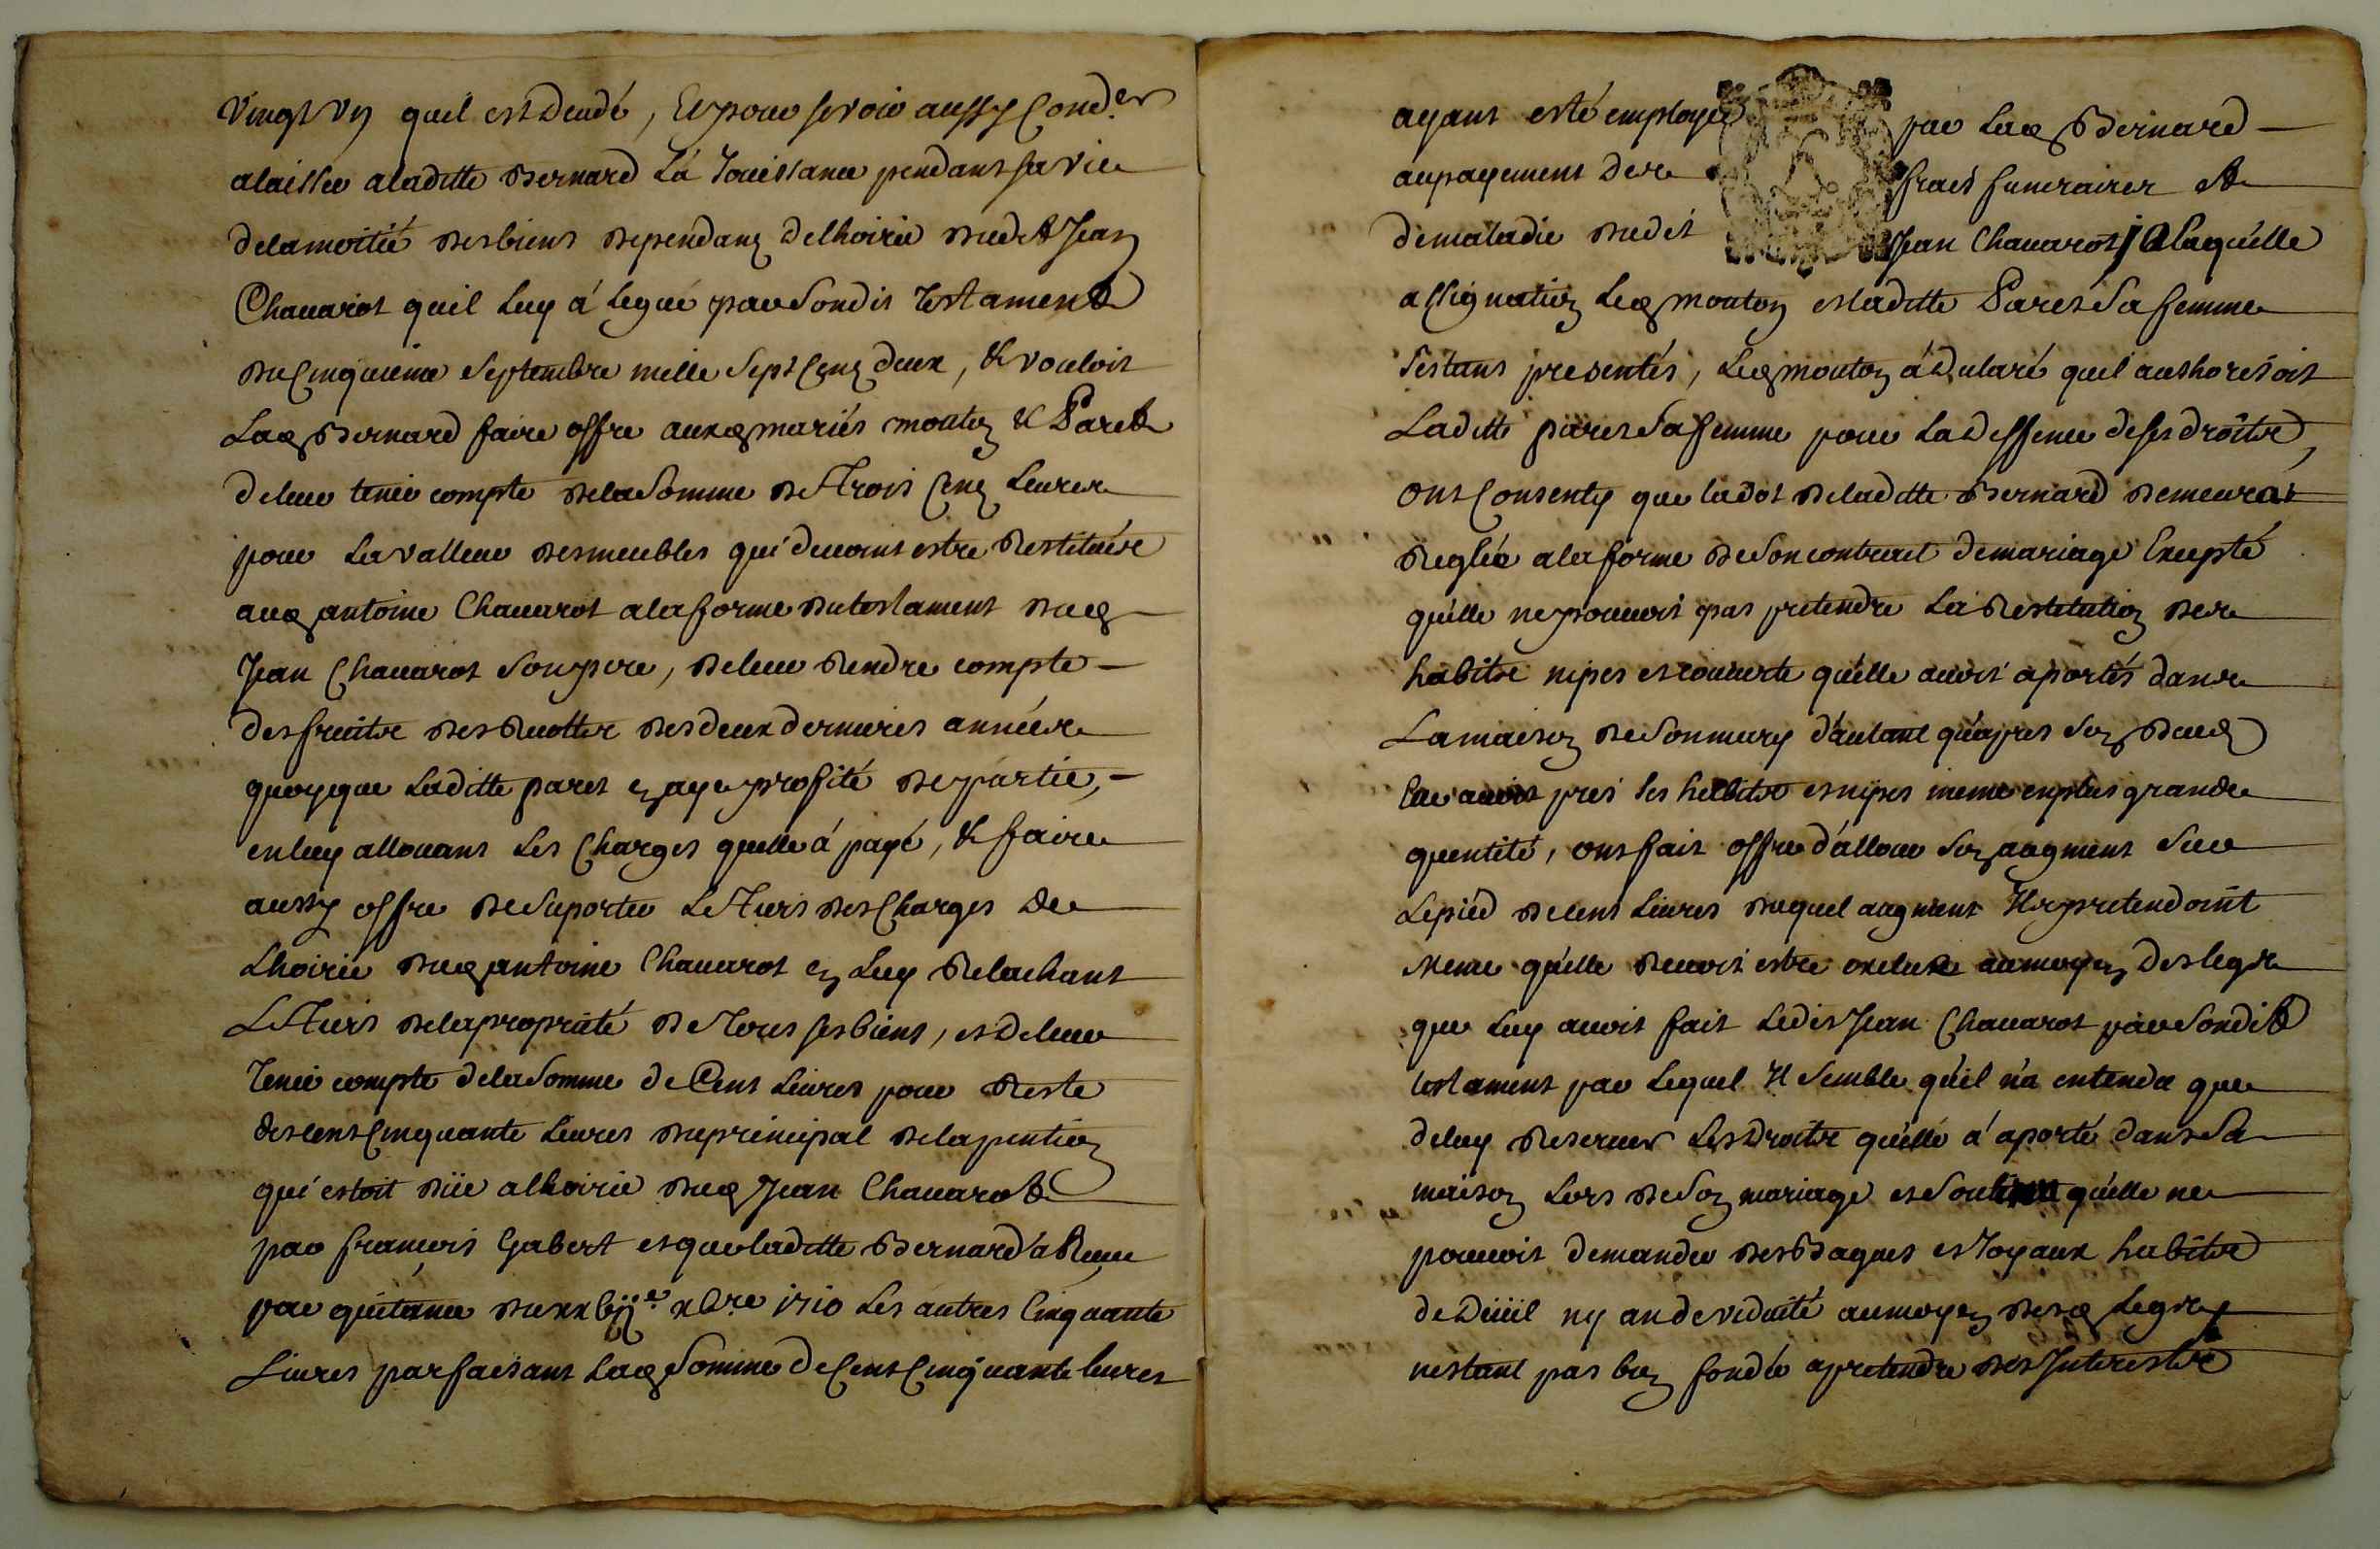 Vingt un quil est decedé, Et pour se voir aussy Cond.er
alaisser aladitte Bernard La Jouissance pendant sa vie
delamoitié desbiens dependans delhoirie dudit Jean
Chauarot quil Luy á legué par Sondit Testament
du Cinquieme Septembre mille Sept Cens deux, & vouloit
Lad Bernard faire offre auxd mariés mouton & Paret
deleur tenir compte delaSomme de Trois Cens Liures
pour La valleur desmeubles qui deuoint estre Restitués
aud antoine Chauarot alaforme dutestament dud
Jean Chauarot Son pere, deleur Rendre compte
desfruits des Recoltes desdeux dernieres années
quoyque Laditte paret en aye profité departie,
enluy allouant Les Charges quelle á payé, & faire
aussy offre deSuporter LeTiers desCharges De
Lhoirie dud antoine Chauarot en Luy Relachant
LeTiers delapropriété deTous ses biens, et deleur
Tenir compte delaSomme de Cent Liures pour Reste
descent Cinquante Liures duprincipal delapention
qui estoit düe alhoirie dud Jean Chauarot
par françois Gabert et que laditte Bernard a Receu
par quittance du xxbije xbre 1710 Les autres Cinquante
Liures parfaisant Lad Somme de Cent Cinquante liures
ayant esté employée par Lad Bernard
aupayement des frais funeraires &
demaladie dudit Jean Chauarot / a Laquelle
assignation Led mouton et laditte Paret Sa femme
Sestant presentés, Led mouton á declaré quil authorisoit
Laditte paret Sa femme pour La deffence deses droits,
ont Consenty que ladot deladitte Bernard demeurat
Reglée alaforme deSon contract demariage Excepté
quelle nepouuoit pas pretendre La Restitution des
habits nipes et couuerte quelle auoit aportés dans
Lamaison deSon mary dautant quapres Son deces
Elle auoit pris ses habits et nipes meme enplus grande
quentité, ont fait offre d'allouer Son augment Sur
Lepied decent Liures duquel augment Ils pretendoint
meme quelle deuoit estre excluse aumoyen des legs
que Luy auoit fait Ledit Jean Chauarot par Sondit
testament par Lequel Il Semble quil na entendu que
deluy Reseruer Les droits quelle á aporté dans Sa
maison Lors deSon mariage et quelle ne
pouuoit demander des Bagues et Joyaux habits
de Düeil ny an de viduité aumoyen desd Legs
nestant pas bien fondée apretendre des Interests